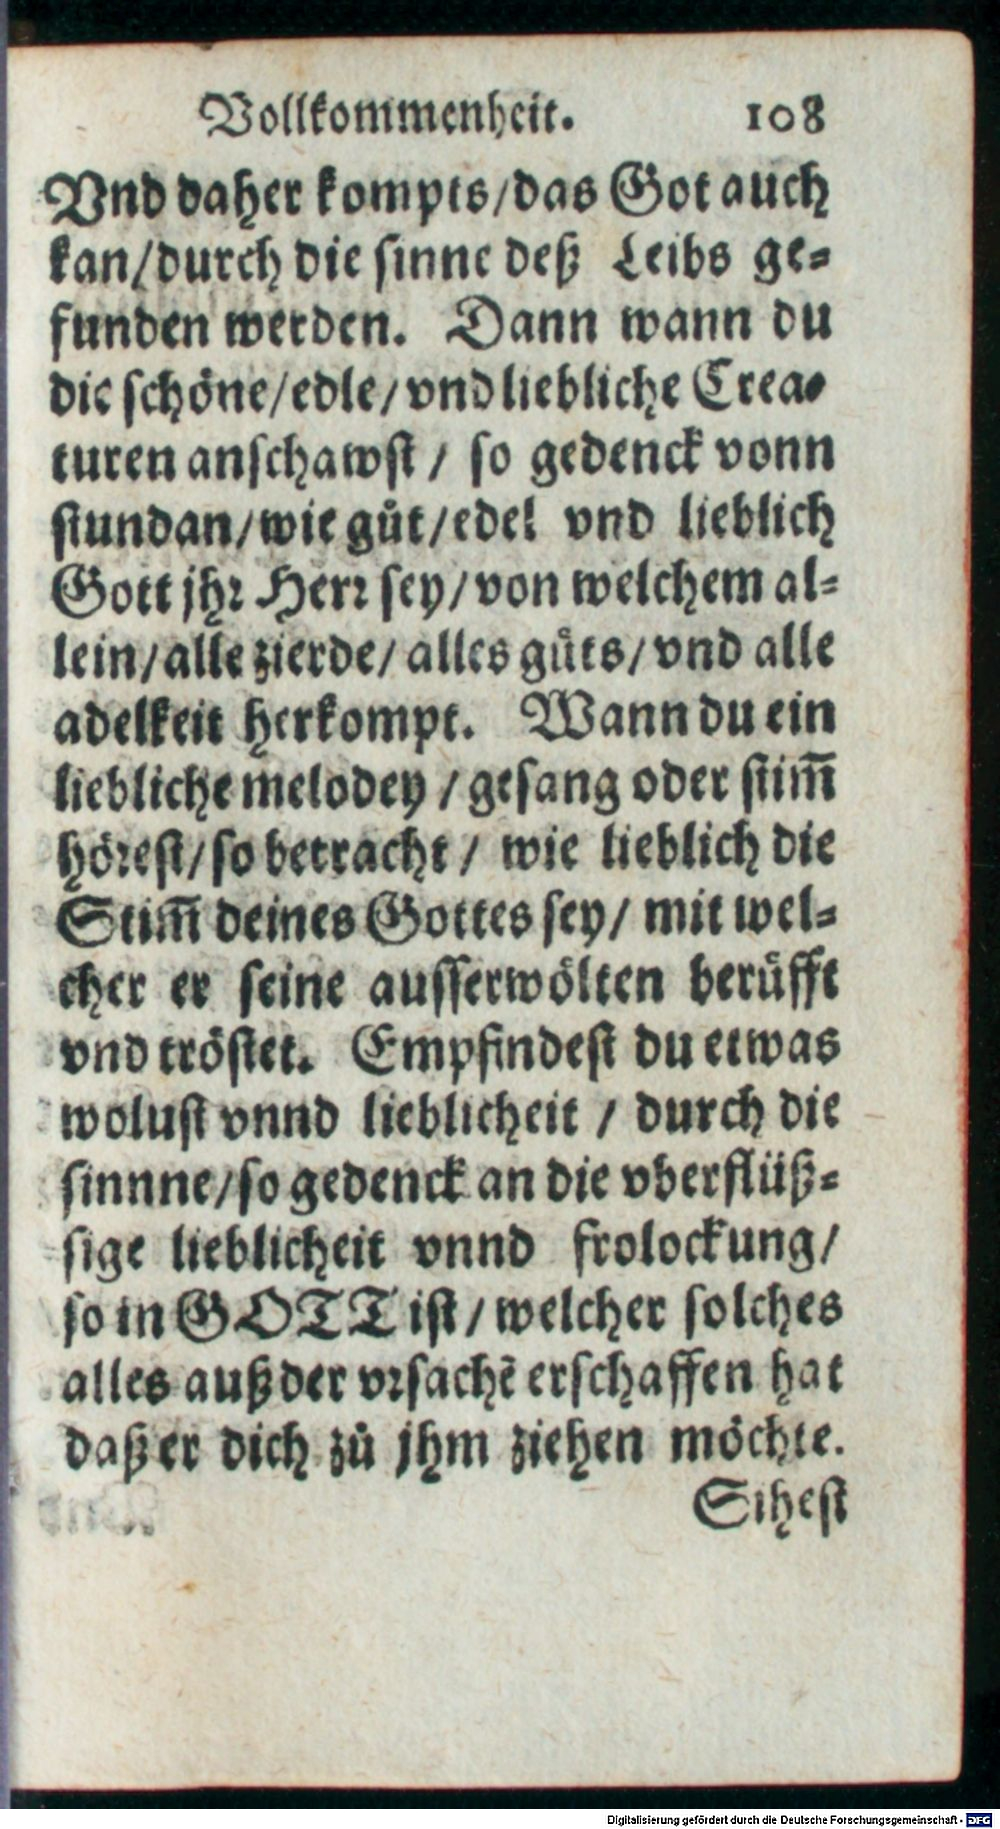 Vollkommenheit. 108
Vnd daher kompts/das Got auch
kan/durch die sinne deß Leibs ge-
funden werden. Dann wann du
die schöne/edle/vnd liebliche Crea-
turen anschawst / so gedenck vonn
stundan/wie gůt/edel vnd lieblich
Gott jhr Herr sey/von welchem al-
lein/alle zierde/alles gůts/vnd alle
adelkeit herkompt. Wann du ein
liebliche melodey / gesang oder stim̃
hörest/so betracht / wie lieblich die
Stim̃ deines Gottes sey/ mit wel-
cher er seine ausserwölten berüfft
vnd tröstet. Empfindest du etwas
wolust vnnd lieblicheit / durch die
sinnne/so gedenck an die vberflüß-
sige lieblicheit vnnd frolockung/
so in GOTT ist/welcher solches
alles auß der vrsachẽ erschaffen hat
daß er dich zů jhm ziehen möchte.
Sihest
Digitalisierung gefördert durch die Deutsche Forschungsgemeinschaft - DFG